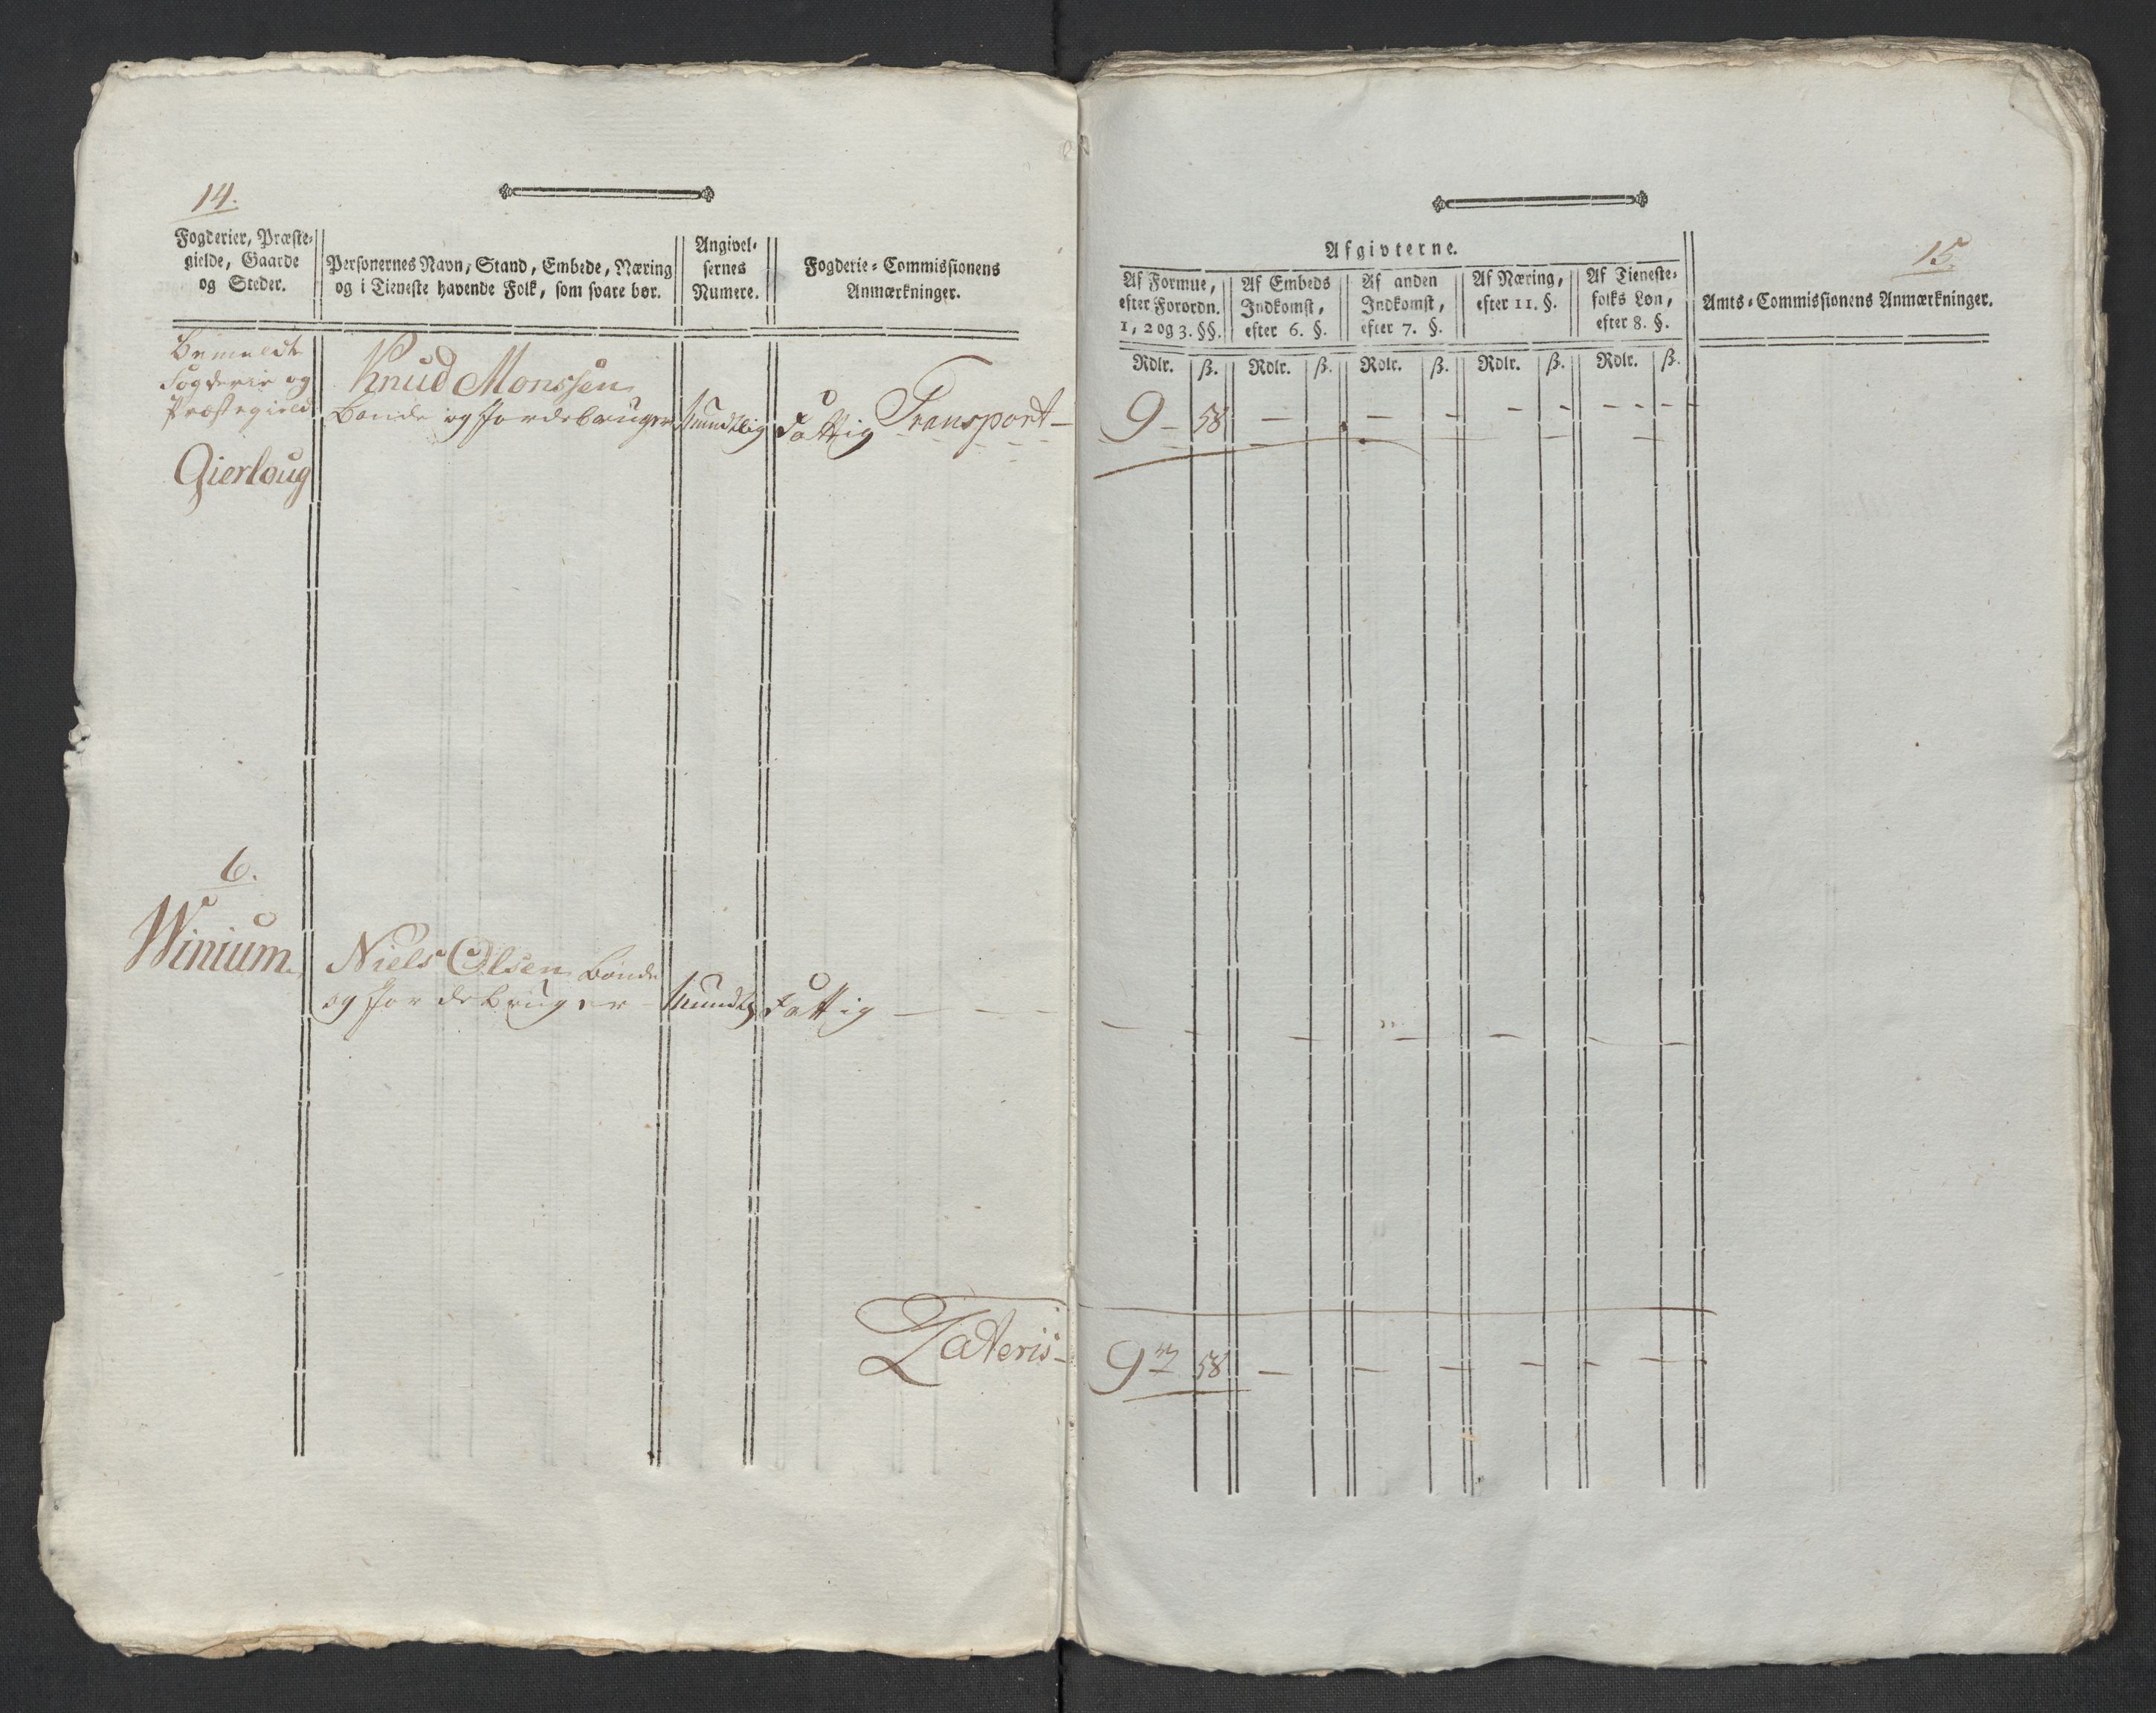 14.
Fogderier, Præste-
gielde, Gaarde
og Steder.
Personernes Navn, Stand, Embede, Næring
og i Tieneste havende Folk, som svare bør.
Angivel-
sernes
Numere.
Fogderie-Commissionens
Anmærkninger.
Bemeldte
Fogderie og
Præstegield
Knud Monssen
Bonde og Jordebruger
Mundtlig
Fattig
Transport
Gierloug
6.
Winium
Niels Olsen Bonde
og Jordebruger
Mundtlig
Fattig
Lateris
15.
Afgivterne.
Af Formue,
efter Forordn.
1, 2 og 3. §§.
Af Embeds
Indkomst,
efter 6. §.
Af anden
Indkomst,
efter 7. §.
Af Næring,
efter 11. §.
Af Tieneste-
folks Løn,
efter 8. §.
Amts-Commissionens Anmærkninger.
Rdlr. ß. Rdlr. ß. Rdlr. ß. Rdlr. ß. Rdlr. ß.
9 - 58 - - - - - - - -
9 58 - - - - - -